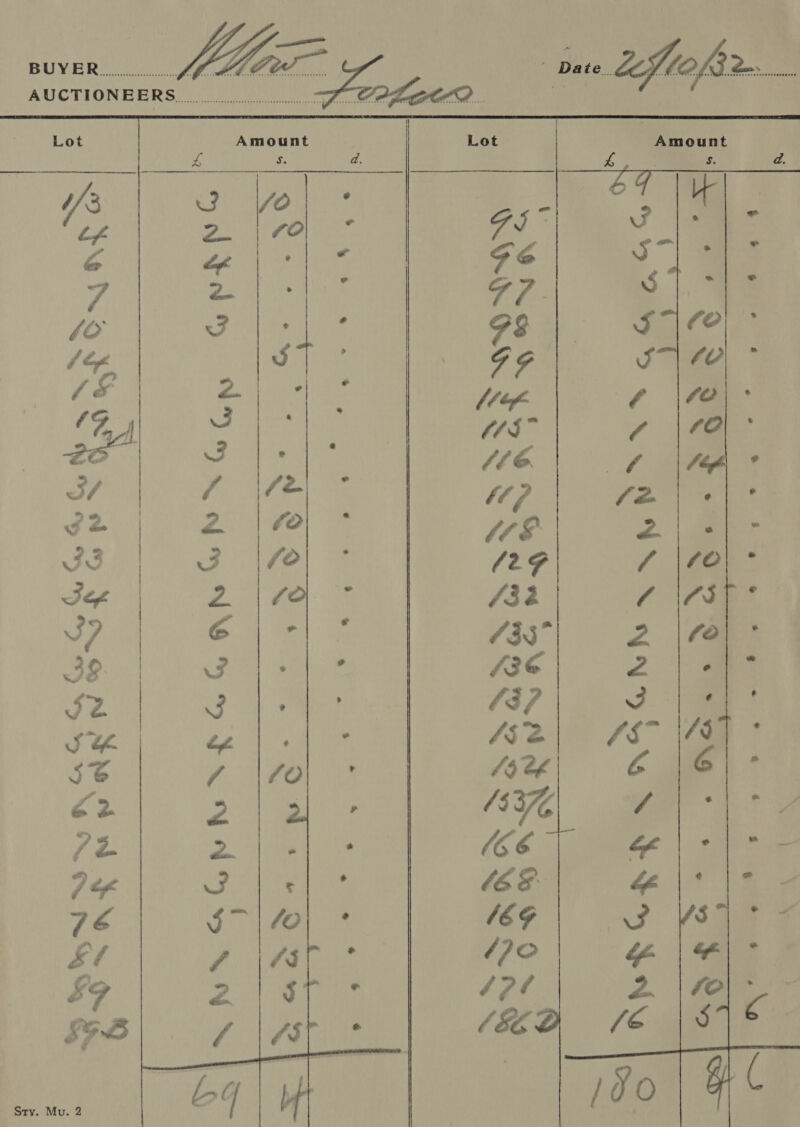 BUYER
Date 24/10/32
AUCTIONEERS
Lot Amount Lot Amount
£ s. d. £ s. d.
69 4
1/3 3 10 -
4 2 10 -
6 4 - -
7 2 - -
10 3 - -
14 5 -
18 2 - -
19 3 - -
20 3 - -
31 1 12 -
32 2 10 -
33 3 10 -
34 2 10 -
37 6 - -
38 3 - -
52 3 - -
54 4 - -
56 1 10 -
62 2 2 -
72 2 - -
74 3 - -
76 5 10 -
81 1 15 -
89 2 5 -
89B 1 15 -
69 4
95 3 - -
96 5 - -
97 5 - -
98 5 10 -
99 5 10 -
114 1 10 -
115 1 10 -
116 1 14 -
117 12 - -
118 2 - -
129 1 10 -
132 1 15 -
135 2 10 -
136 2 - -
137 3 - -
152 15 15 -
6 6 -
153/6 1 - -
166 4 - -
168 4 - -
169 3 15 -
170 4 4 -
171 2 10 -
186D 16 5 6
180 6
Sty. Mu. 2